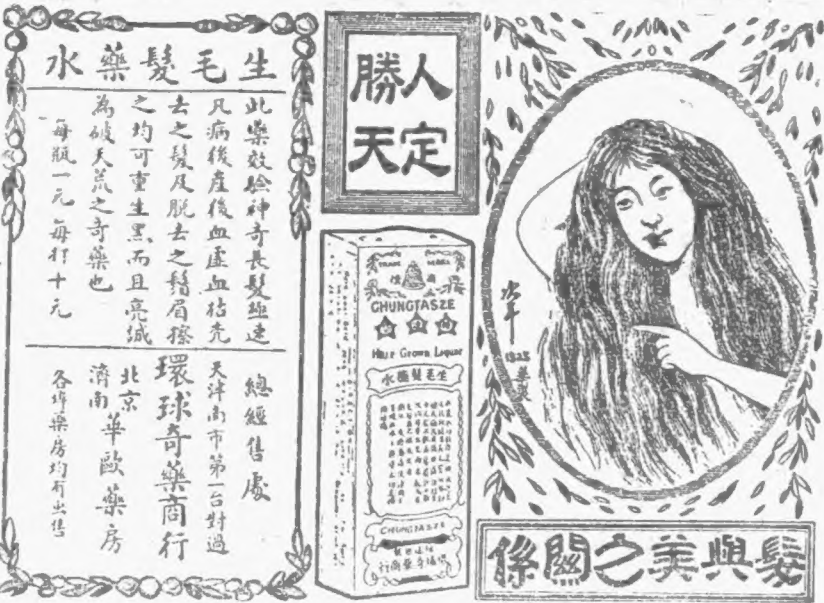 生毛髮藥水
此藥效驗神奇長髮極速
凡病後產後血虛血枯禿
去之髮及脫去之鬍眉擦
之均可重生黑而且亮誠
為破天荒之奇藥也
每瓶一元 每打十元
總經售處
天津南市第一台對過
環球奇藥商行
北京
濟南
華歐藥房
各埠藥房均有出售
人定
勝天
TRADE MARKS
商標
CHUNGTASZE
Hair Grown Liquor
生毛髮藥水
CHUNGTASZE
1923
髮與美之關係